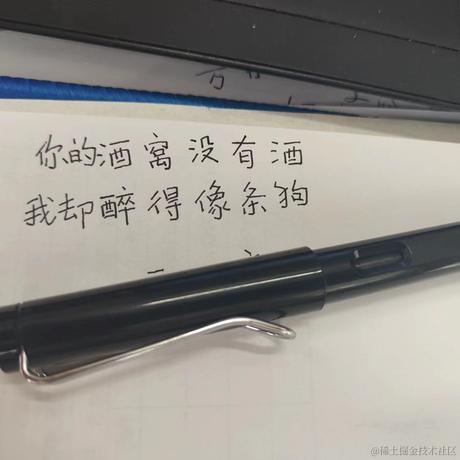 你的酒窝没有酒
我却醉得像条狗
@稀土掘金技术社区